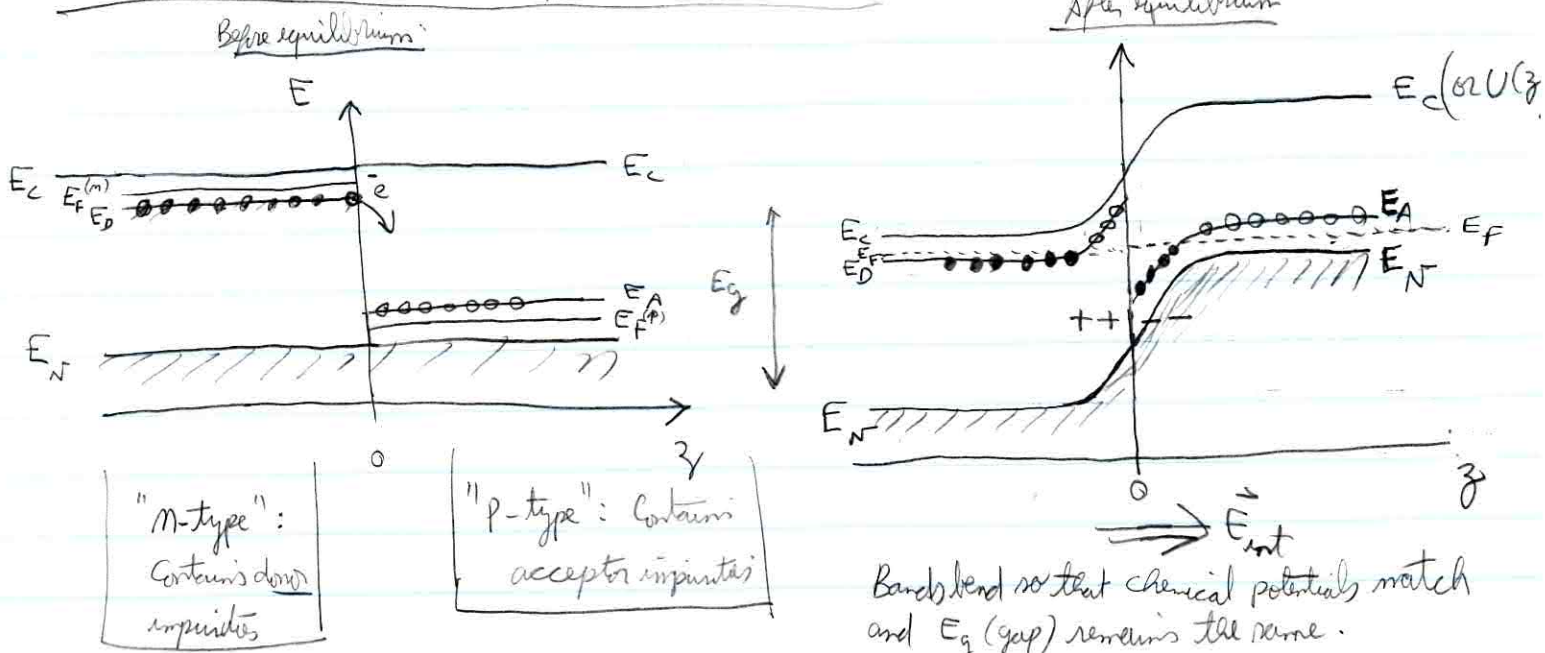 Before equilibrium:
After equilibrium
E
E_c
E_F^(n)
E_D
e^-
E_c
E_A
E_F^(p)
E_v
0
z
"n-type":
Contains donor
impurities
"P-type": Contains
acceptor impurities
E_g
E_c (or U(z
E_c
E_F
E_D
E_A
E_F
E_v
++
--
E_v
0
z
E_int
Bands bend so that chemical potentials match
and E_g (gap) remains the same.